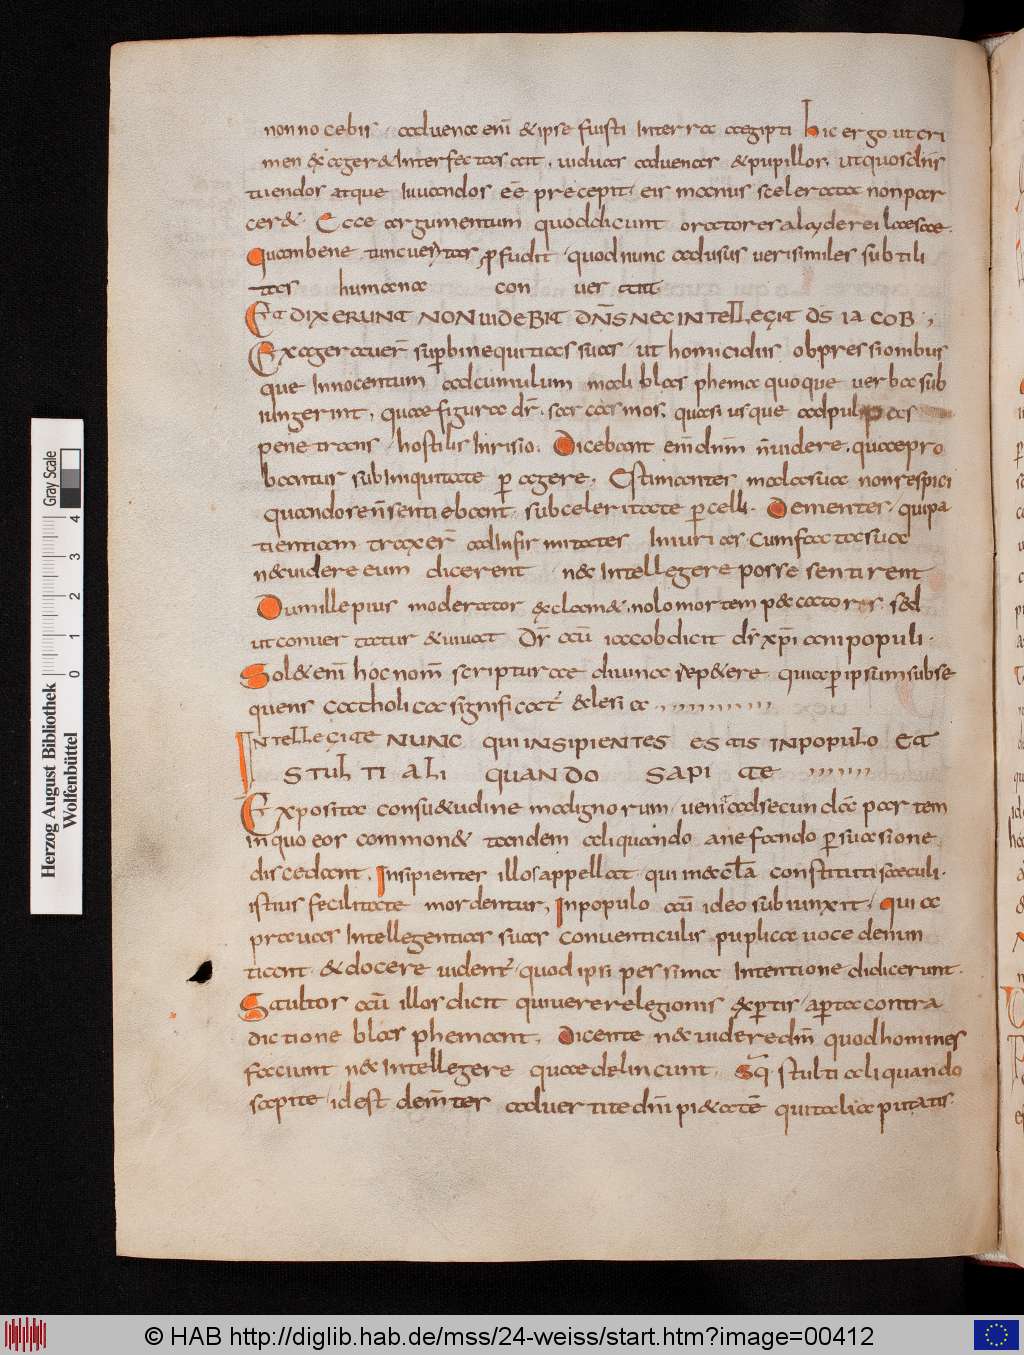 non nocebis · aduena eni͞ & ipse fuisti In terra aegipti hic ergo ut cri
men exager& Interfectas ait · uiduas aduenas & pupillos, ut quos dn̅s
tuendos atque Iuuandos ee̅ precepit · eis manus scelerata non par
cer& · Ecce argumentum quod dicunt oratores a lat̅dere i
Quam bene tunc ueritas, ꝓfudit · quod nunc ad usus uerisimiles subtili
tas humana con uer tat
ET DIXERUNT NON UIDEBIT DN̅S NEC INTELLEGIT DS̅ IACOB ·,
Exageraueŕ suꝑbi nequitias suas / ut homicidiis obpressionibus
que Innocentum ad cumulum mali blasphema quoque uerba sub
iungerint, quae figura dŕ · sarcasmos; quasi usque ad pulpas
penetrans / hostilis Inrisio; Dicebant eni͞ dnm̅ n̅ uidere · quae pro
bantur sub Iniquitate ꝑagere, Estimantes mala sua non respici
quando se n̅ sentiebant · sub celeritate ꝑcelli · Dementes / qui pa
tientiam traxeŕ ad Infirmitates Iniurias cum facta sua
nec uidere eum dicerent nec Intellegere posse sentirent
Dum ille pius moderator exclam& · nolo mortem peccatoris · sed
ut conuertatur & uiuat Dŕ au̅ iacob dicit dŕ xp̅iani populi ·
Sol& eni͞ hoc nom̅ scripturae diuinae rep&ere quia ꝑ ipsum subse
quens catholica significat́ eclesia ,,,,,,,,,
INTELLEGITE NUNC QUI INSIPIENTES ESTIS IN POPULO ET
STULTI ALI QUANDO SAPI TE ,,,,,
Exposita consu&udine malignorum / uenit ad secundā partem
in quo eos common& tandem aliquando a nefando ꝑsuasione
discedant · Insipientes illos appellat · qui in aecl̅a constituti saeculi ·
istius fecilitate mordentur, In populo au̅ ideo subiunxit / qui a
prauas Intellegentias suas conuenticulis puplica uoce denun
tiant · & docere uidentŕ · quod ipsi pessima Intentione didicerunt ·
Stultos au̅ illos dicit qui uere relegionis exꝑtis / aꝑta contra
dictione blasphemant · Dicente nec uidere dm̅ quod homines
faciunt nec Intellegere quae delincunt · stulti aliquando
sapite / id est dem̅ter aduertite dn̅i pi&atē qui talia putatis ·
Herzog August Bibliothek
Wolfenbüttel
0 1 2 3 4
Gray Scale
© HAB http://diglib.hab.de/mss/24-weiss/start.htm?image=00412